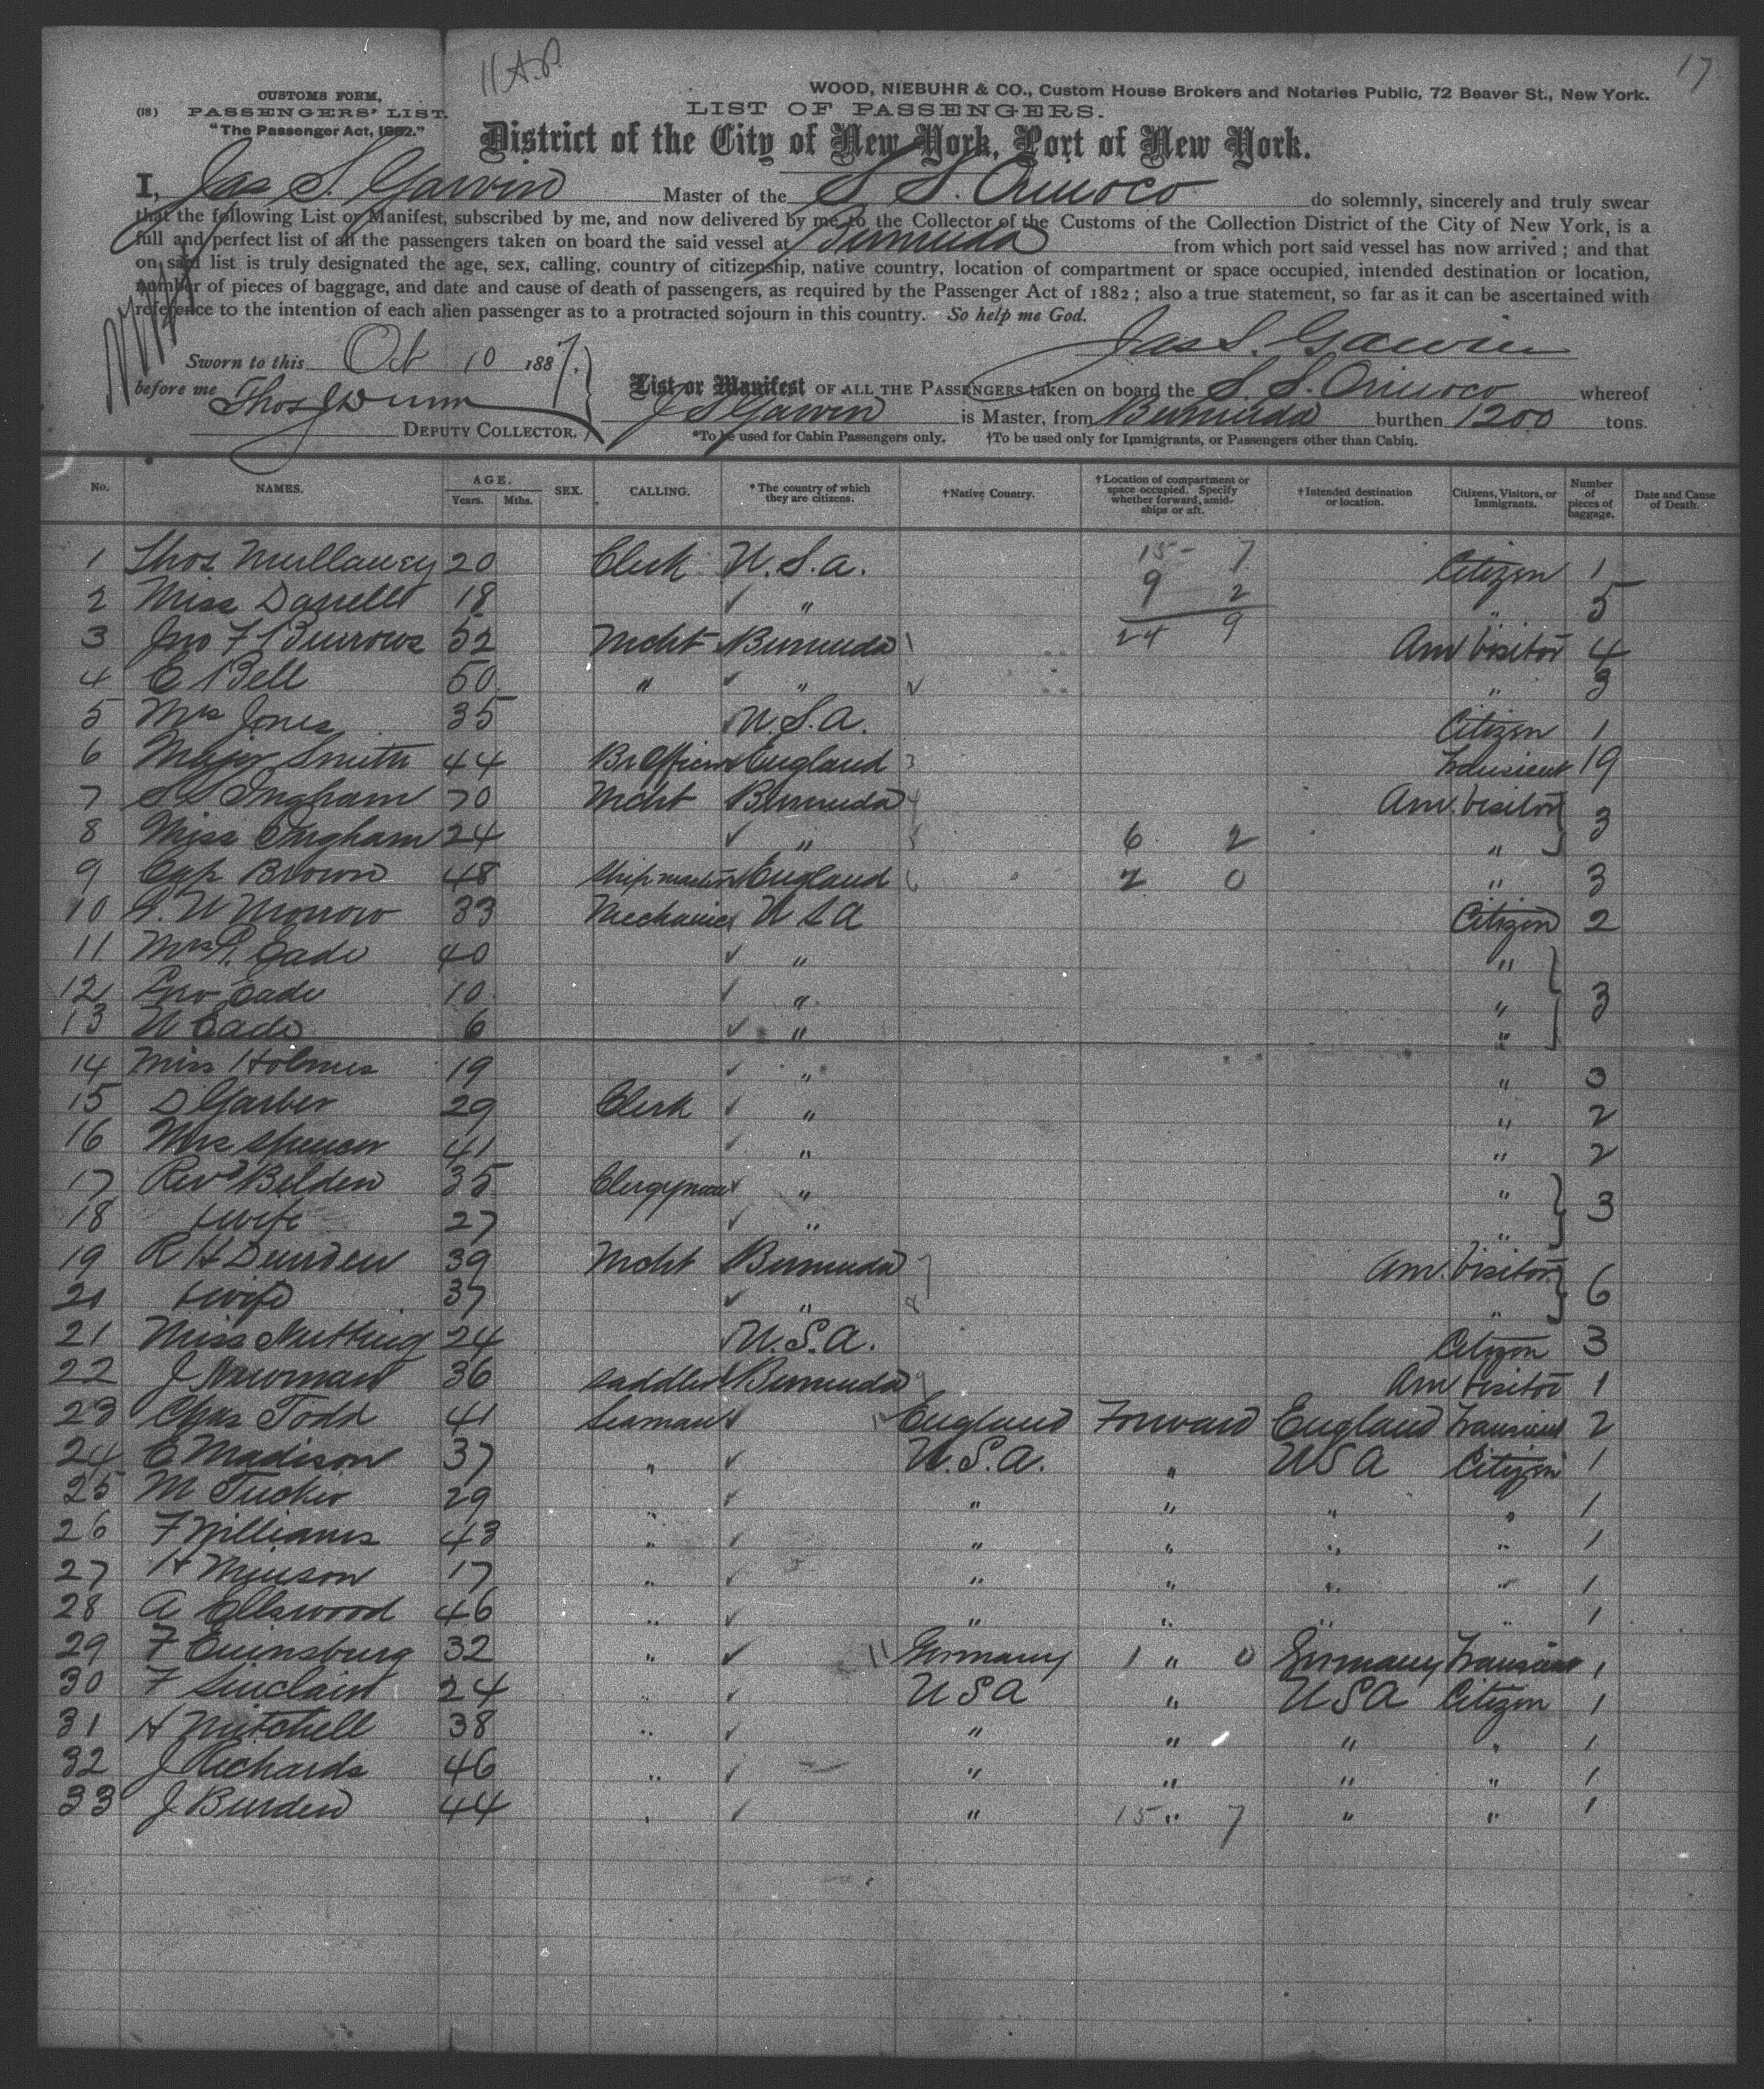 11 A.P.
17
CUSTOMS FORM,
(18) PASSENGERS' LIST.
"The Passenger Act, 1882."
WOOD, NIEBUHR & CO., Custom House Brokers and Notaries Public, 72 Beaver St., New York.
LIST OF PASSENGERS.
District of the City of New York, Port of New York.
I, Jas S. Garvin Master of the S S. Orinoco do solemnly, sincerely and truly swear
that the following List or Manifest, subscribed by me, and now delivered by me to the Collector of the Customs of the Collection District of the City of New York, is a
full and perfect list of all the passengers taken on board the said vessel at Bermuda from which port said vessel has now arrived; and that
on said list is truly designated the age, sex, calling, country of citizenship, native country, location of compartment or space occupied, intended destination or location,
number of pieces of baggage, and date and cause of death of passengers, as required by the Passenger Act of 1882; also a true statement, so far as it can be ascertained with
reference to the intention of each alien passenger as to a protracted sojourn in this country. So help me God.
Jas S. Garvin
Sworn to this Oct 10 1887.
before me Thos J Dunn
DEPUTY COLLECTOR.
List or Manifest OF ALL THE PASSENGERS taken on board the S. S. Orinoco whereof
J S Garvin is Master, from Bermuda burthen 1200 tons.
*To be used for Cabin Passengers only. †To be used only for Immigrants, or Passengers other than Cabin.
No. NAMES. AGE. Years. Mths. SEX. CALLING. *The country of which they are citizens. †Native Country. †Location of compartment or space occupied. Specify whether forward, amidships or aft. †Intended destination or location. Citizens, Visitors, or Immigrants. Number of pieces of baggage. Date and Cause of Death.
1 Thos Mullaney 20 Clerk U.S.a. 15- 7 Citizen 1
2 Miss Darrell 18 ✓ " 9 2 " 5
3 Jno F Burrows 52 Mcht Bermuda 1 24 9 Am Visitor 4
4 E Bell 50 " ✓ " " 3
5 Mrs Jones 35 U.S.A. Citizen 1
6 Major Smith 44 Br Officer England 3 Transient 19
7 Ingham 70 Mcht Bermuda 4 Am. Visitor
8 Miss Ingham 24 ✓ " 5 6 2 " } 3
9 Cap Brown 48 Shipmaster England 6 2 0 " 3
10 Morrow 33 Mechanic U S A Citizen 2
11 Mrs P. Eade 40 ✓ " "
12 Eade 10 ✓ " " } 3
13 W Eade 6 ✓ " "
14 Miss Holmes 19 ✓ " " 3
15 D Garber 29 Clerk ✓ " " 2
16 Mrs Spencer 41 ✓ " " 2
17 Revd Belden 35 Clergyman ✓ " "
18 + wife 27 ✓ " " } 3
19 R H Durrden 39 Mcht Bermuda 7 Am. Visitor
20 + wife 37 ✓ " 8 " } 6
21 Miss Nutting 24 ✓ U.S.A. Citizen 3
22 J Newman 36 Saddler Bermuda 9 Am Visitor 1
23 Chas Todd 41 Seaman ✓ England Forward England Transient 2
24 C Madison 37 " ✓ U.S.A. " U S A Citizen 1
25 M Tucker 29 " ✓ " " " " 1
26 F Williams 43 " ✓ " " " " 1
27 H Minson 17 " ✓ " " " " 1
28 A Ellswood 46 " ✓ " " " " 1
29 F 32 " ✓ 11 Germany 1 " 0 Germany Transient 1
30 F Sinclair 24 " ✓ U S A " U S A Citizen 1
31 H Mitchell 38 " ✓ " " " " 1
32 J Richards 46 " ✓ " " " " 1
33 J Burden 44 " ✓ " 15 " 7 " " 1